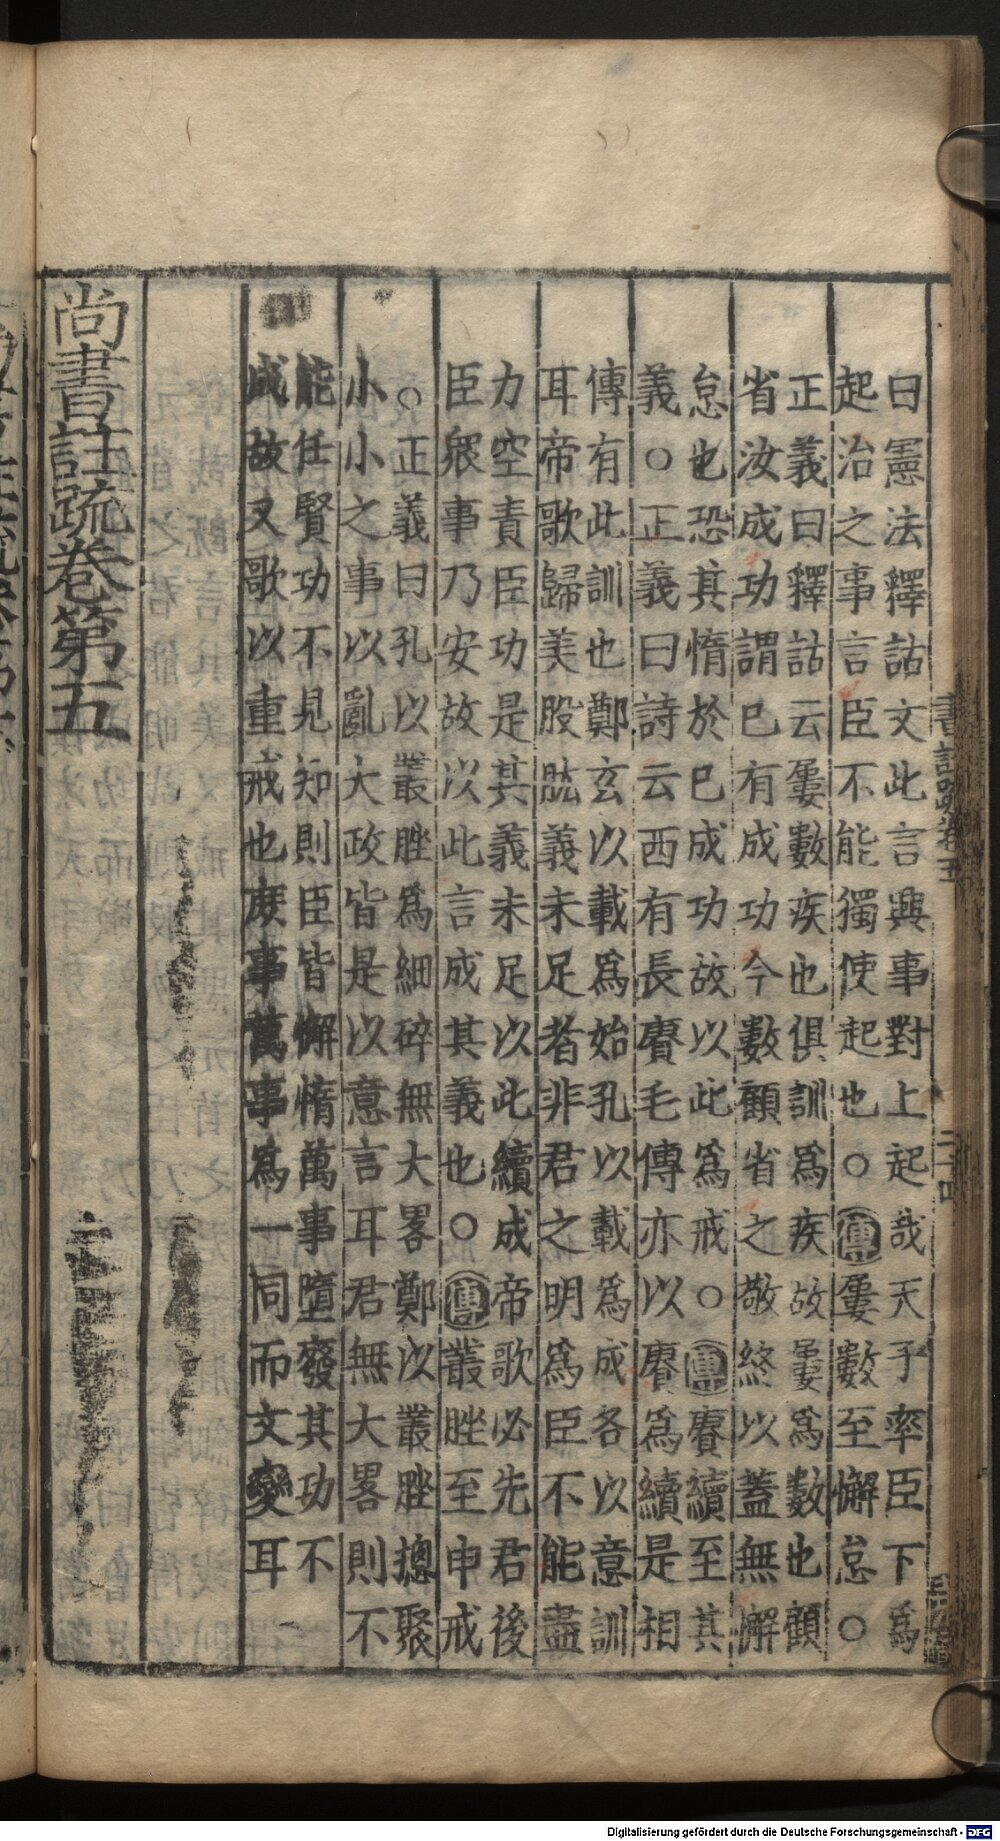 曰憲法釋詁文此言興事對上起哉天子率臣下爲
起治之事言臣不能獨使起也○傳屢數至懈怠○
正義曰釋詁云屢數疾也俱訓爲疾故屢爲數也顧
省汝成功謂已有成功今數顧省之敬終以蓋無懈
怠也恐其惰於已成功故以此爲戒○傳賡續至其
義○正義曰詩云西有長賡毛傳亦以賡爲續是相
傳有此訓也鄭玄以載爲始孔以載爲成各以意訓
耳帝歌歸美股肱義未足者非君之明爲臣不能盡
力空責臣功是其義未足以此續成帝歌必先君後
臣衆事乃安故以此言成其義也○傳叢脞至申戒
○正義曰孔以叢脞爲細碎無大畧鄭以叢脞揔聚
小小之事以亂大政皆是以意言耳君無大畧則不
能任賢功不見知則臣皆懈惰萬事墮發其功不
成故又歌以重戒也庶事萬事爲一同而文變耳
尚書註疏卷第五
書註疏卷五
二十四
Digitalisierung gefördert durch die Deutsche Forschungsgemeinschaft - DFG